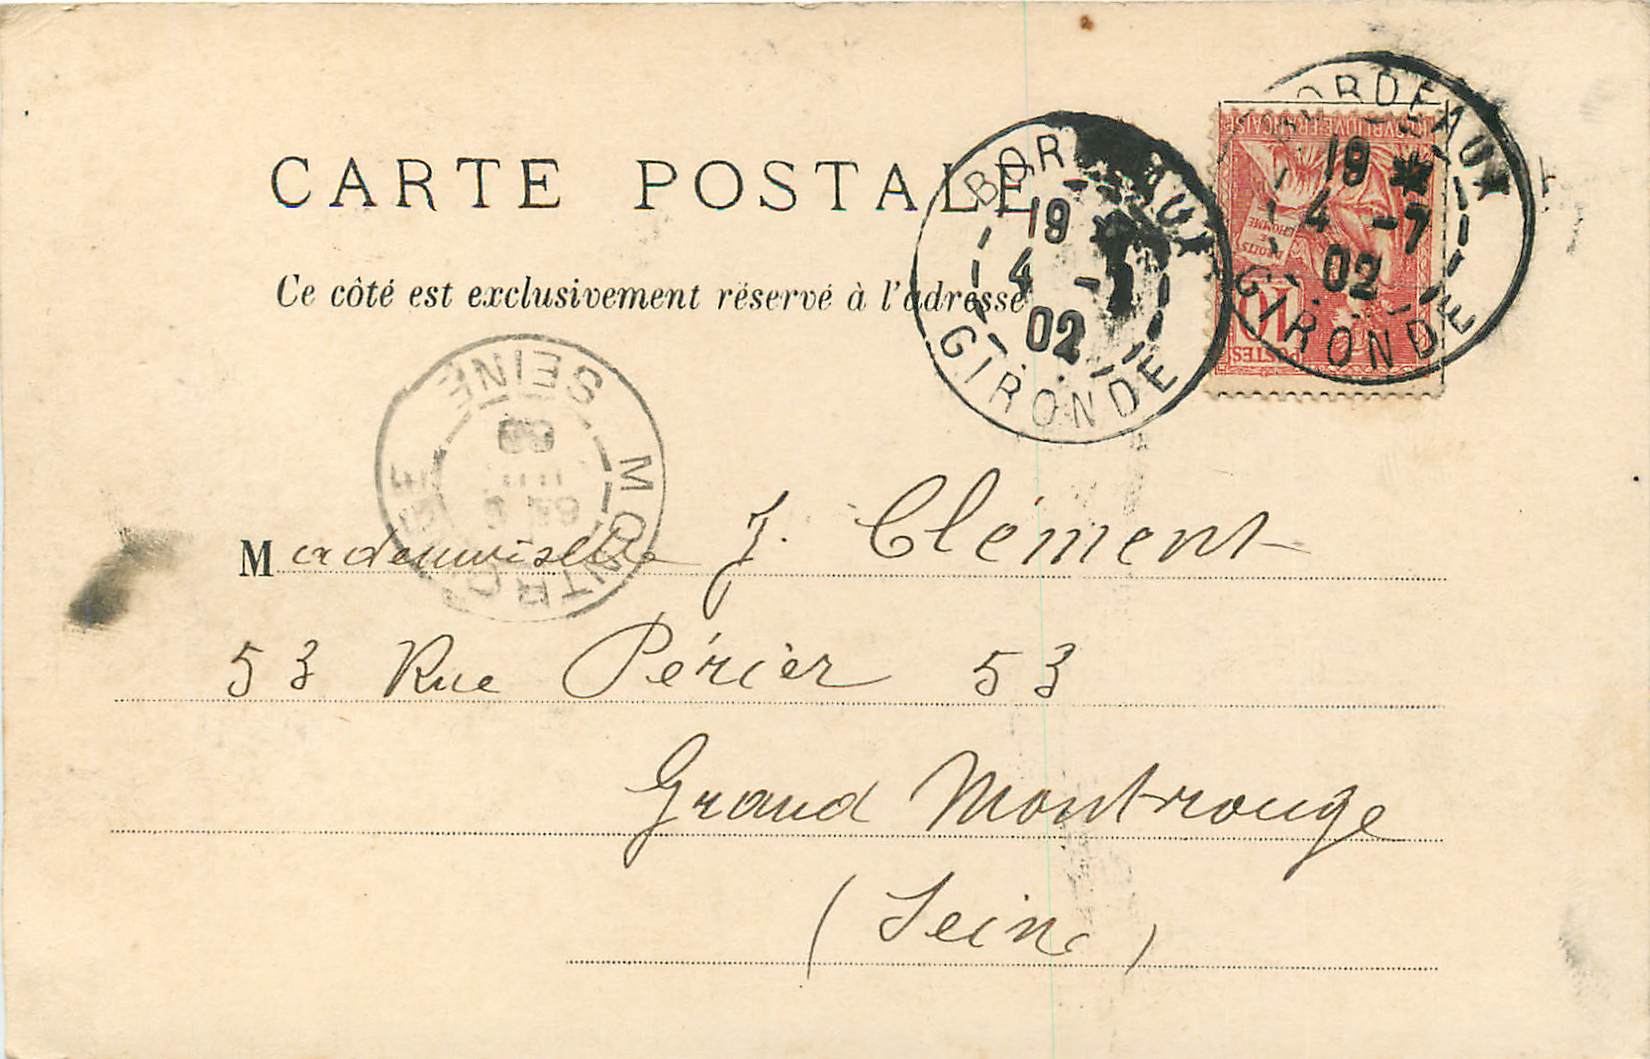 CARTE POSTALE
Ce côté est exclusivement réservé à l'adresse
BORDEAUX
19 *
4 -7
02
GIRONDE
BORDEAUX
19 *
4 -7
02
GIRONDE
POSTES
10
DROITS
DE
L'HOMME
SEINE
MONTROUGE
Mademoiselle J. Clément
53 Rue Périer 53
Grand Montrouge
(Seine)